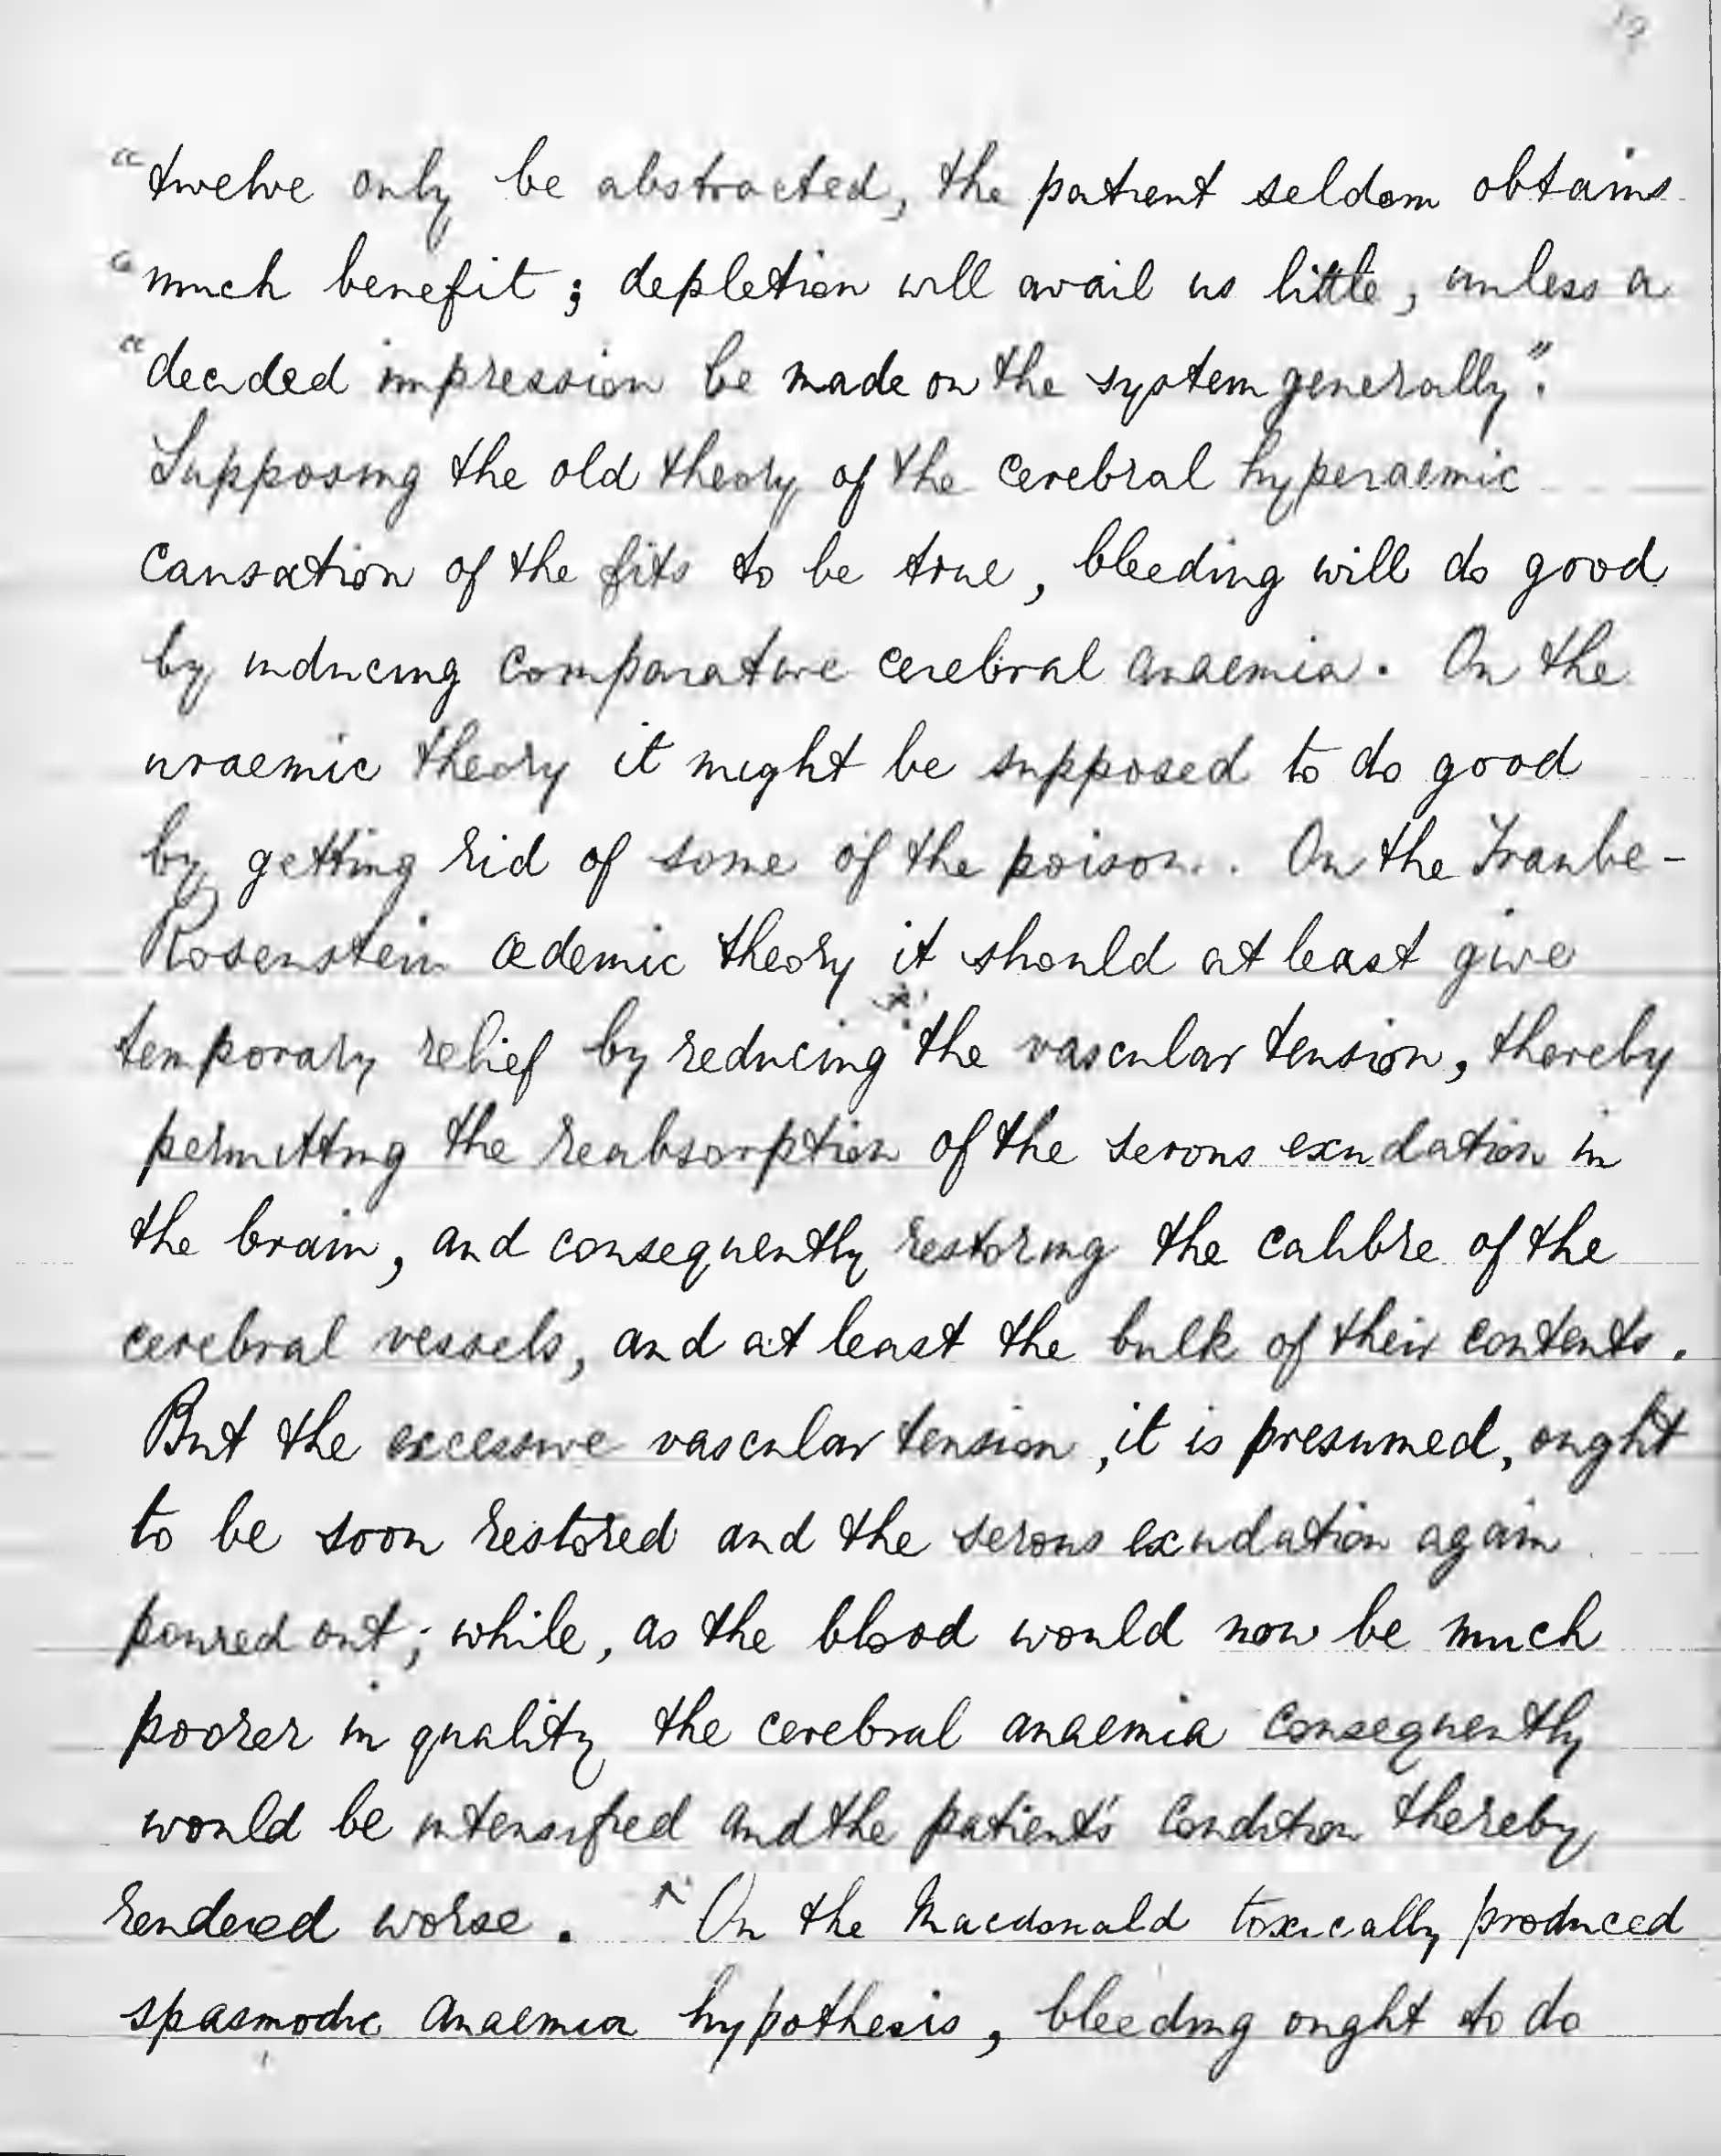 “twelve only be abstracted, the patient seldom obtains
“much benefit; depletion will avail us little, unless a
“decided impression be made on the system generally”.
Supposing the old theory of the cerebral hyperaemic
causation of the fits to be true, bleeding will do good
by inducing comparative cerebral anaemia. On the
uraemic theory it might be supposed to do good
by getting rid of some of the poison. On the Traube-
Rosenstein œdemic theory it should at least give
temporary relief by reducing the vascular tension, thereby
permitting the reabsorption of the serous exudation in
the brain, and consequently restoring the calibre of the
cerebral vessels, and at least the bulk of their contents.
But the excessive vascular tension, it is presumed, ought
to be soon restored and the serous exudation again
poured out; while, as the blood would now be much
poorer in quality the cerebral anaemia consequently
would be intensified and the patient's condition thereby
rendered worse. On the Macdonald toxically produced
spasmodic anaemia hypothesis, bleeding ought to do